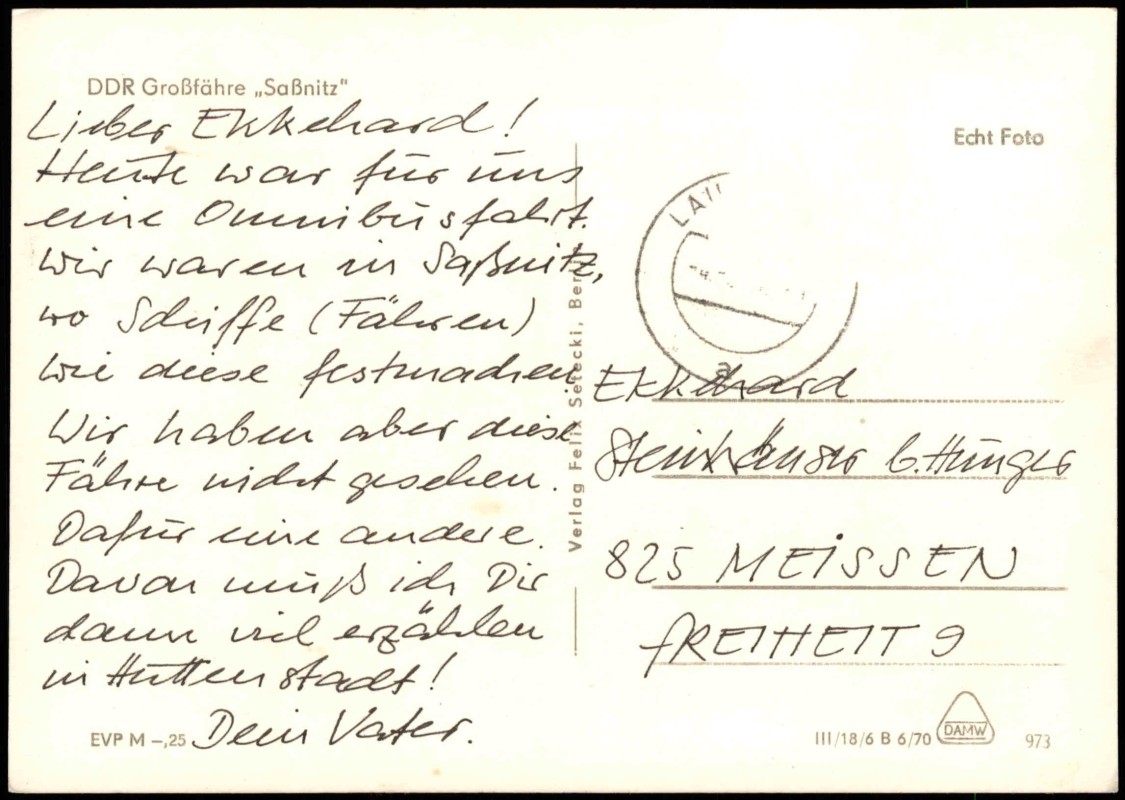 DDR Großfähre „Saßnitz"
Lieber Ekkehard!
Heute war für uns
eine Omnibusfahrt.
Wir waren in Saßnitz,
wo Schiffe (Fähren)
wie diese festmachen
Wir haben aber diese
Fähre nicht gesehen.
Dafür eine andere.
Davon muß ich Dir
dann viel erzählen
in Hüttenstadt!
Dein Vater.
EVP M –,25
Verlag Felix Setecki, Ber
Echt Foto
a
Ekkehard
Steinhäuser b. Hunger
825 MEISSEN
FREIHEIT 9
III/18/6 B 6/70
DAMW
973